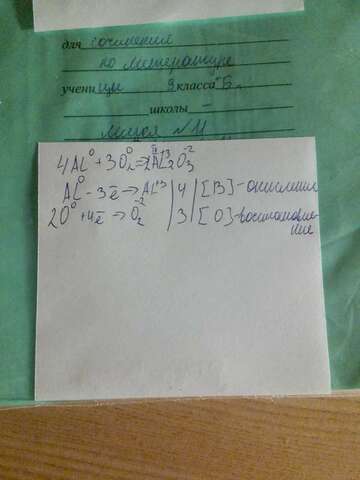 для сочинения
по литературе
учени цы 9 класса "Б"
школы
лицея №11
4AL⁰ + 3O₂⁰ = 2AL₂⁺³O₃⁻²
AL⁰ - 3ē → AL⁺³ | 4 | [В] - окисление
2O⁰ + 4ē → O₂⁻² | 3 | [O] - восстановле-
ние